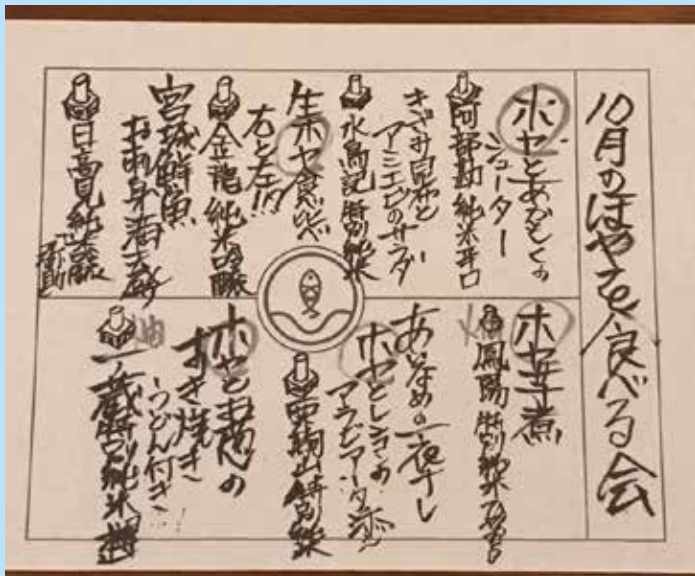 10月のほやを食べる会
ホヤとあかもくの
シューター
阿部勘 純米辛口
きざみ昆布と
アミエビのサラダ
水鳥記 特別純米
生ホヤ食べ比べ
右と左!!
金龍 純米吟醸
宮城鮮魚
お刺身海鮮
日高見 純米吟醸
弥助
ホヤ芋煮
鳳陽 特別純米
あいなめの一夜干し
ホヤとレンコンの
アラビアータ
栗駒山 特別純米
ホヤとお肉の
すき焼き
うどん付き
一ノ蔵 特別純米